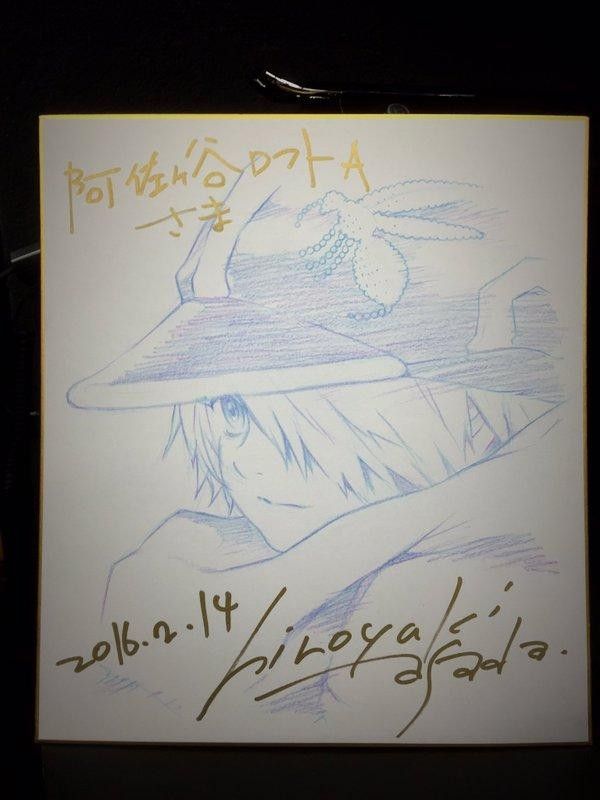 阿佐ヶ谷ロフトA
さま
2016.2.14 hiroyuki
asada.